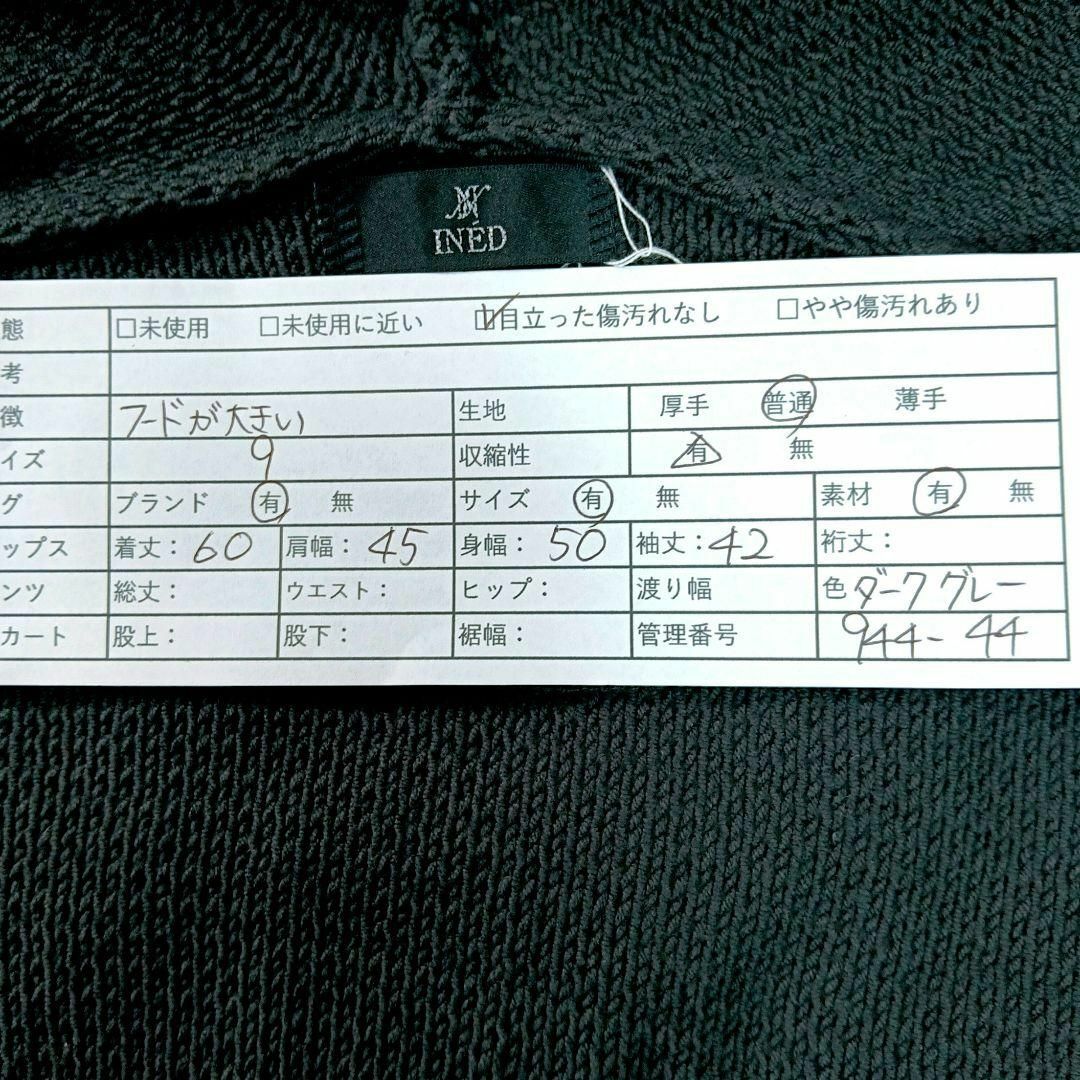 INÉD
態 □未使用 □未使用に近い ☑目立った傷汚れなし □やや傷汚れあり
考
徴 フードが大きい 生地 厚手 普通 薄手
イズ 9 収縮性 有 無
グ ブランド 有 無 サイズ 有 無 素材 有 無
ップス 着丈：60 肩幅：45 身幅：50 袖丈：42 裄丈：
ンツ 総丈： ウエスト： ヒップ： 渡り幅 色 ダークグレー
カート 股上： 股下： 裾幅： 管理番号 944-44